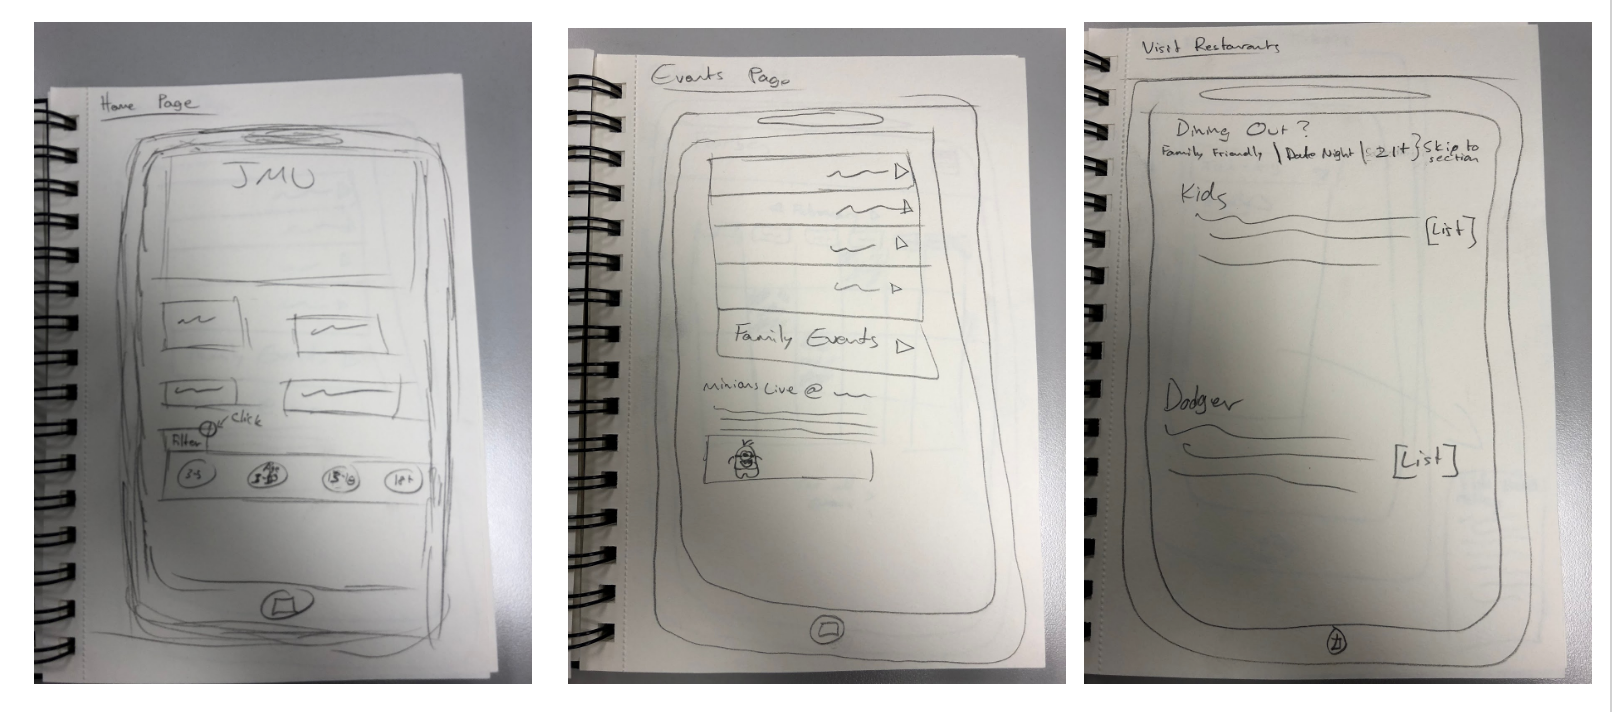 Home Page
JMU
Click
Filter
18+
Events Page
Family Events
Minions Live @
Visit Restaurants
Dining Out ?
Family Friendly \ Date Night \ 21+ } Skip to section
Kids
[List]
Dodger
[List]